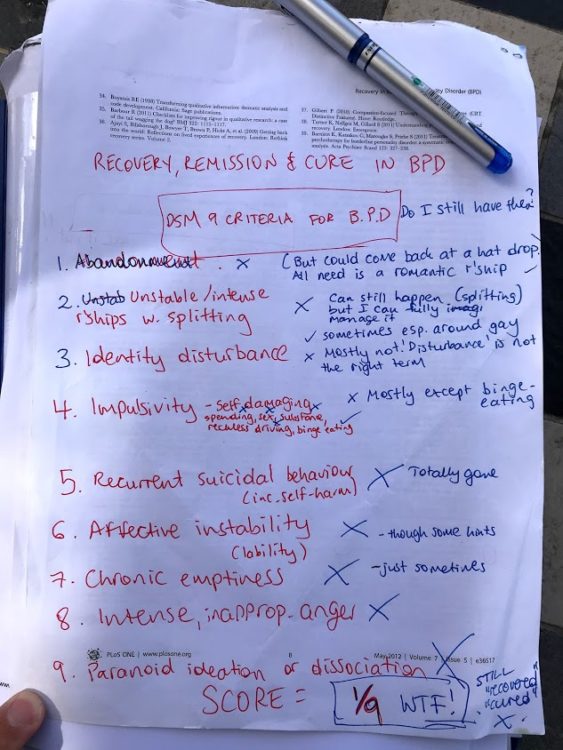 Recovery in
ity Disorder (BPD)
34. Boyatzis RE (1998) Transforming qualitative information: thematic analysis and
code development. California: Sage publications.
35. Barbour R (2011) Checklists for improving rigour in qualitative research: a case
of the tail wagging the dog? BMJ 322: 1115–1117.
36. Ajayi S, Billsborough J, Bowyer T, Brown P, Hicks A, et al. (2009) Getting back
into the world: Reflections on lived experiences of recovery. London: Rethink
recovery series, Volume 2.
37. Gilbert P (2010) Compassion-focused Therapy
Distinctive Features). Hove: Routledge.
38. Turner K, Neffgen M, Gillard S (2011) Understanding
recovery. London: Emergence.
39. Barnicot K, Katsakou C, Marougka S, Priebe S (2011) Treatment
psychotherapy for borderline personality disorder: a systematic
analysis. Acta Psychiatr Scand 123: 327–338.
RECOVERY, REMISSION & CURE IN BPD
DSM 9 CRITERIA FOR B.P.D
Do I still have them?
1. Abandonment. x (But could come back at a hat drop.
All need is a romantic r'ship
2. Unstab Unstable/intense
r'ships w. splitting
x Can still happen (splitting)
but I can fully imag,
manage it
3. Identity disturbance
✓ sometimes esp. around gay
x Mostly not! 'Disturbance' is not
the right term
4. Impulsivity - self damaging x
spending, sex, substance,
reckless driving, binge eating ✓
x Mostly except binge-
eating
5. Recurrent suicidal behaviour
(inc. self-harm)
X Totally gone
6. Affective instability
(lability)
X - though some hints
7. Chronic emptiness X - just sometimes
8. Intense, inapprop. anger X
PLoS ONE | www.plosone.org
8
May 2012 | Volume 7 | Issue 5 | e36517
9. Paranoid ideation or dissociation ✓
SCORE = 1/9 WTF!
STILL
"recovered"
"cured"
x.